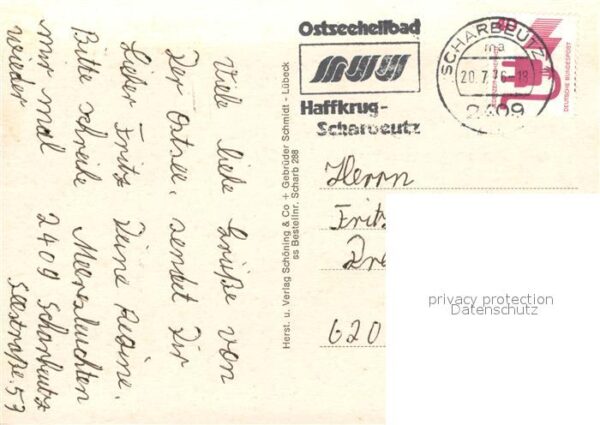 Viele liebe Grüße von
Der Ostsee. sendet Dir
Lieber Fritz Deine Regine.
Bitte schreibe Meeresleuchten
mir mal 2409 Scharbeutz
wieder Seestraße 59
Herst. u. Verlag Schöning & Co + Gebrüder Schmidt - Lübeck
ss Bestellnr. Scharb 288
Ostseeheilbad
Haffkrug-
Scharbeutz
SCHARBEUTZ
ma
20.7.76-18
2409
DEUTSCHE BUNDESPOST
Herrn
Fritz
Dre
620
privacy protection
Datenschutz